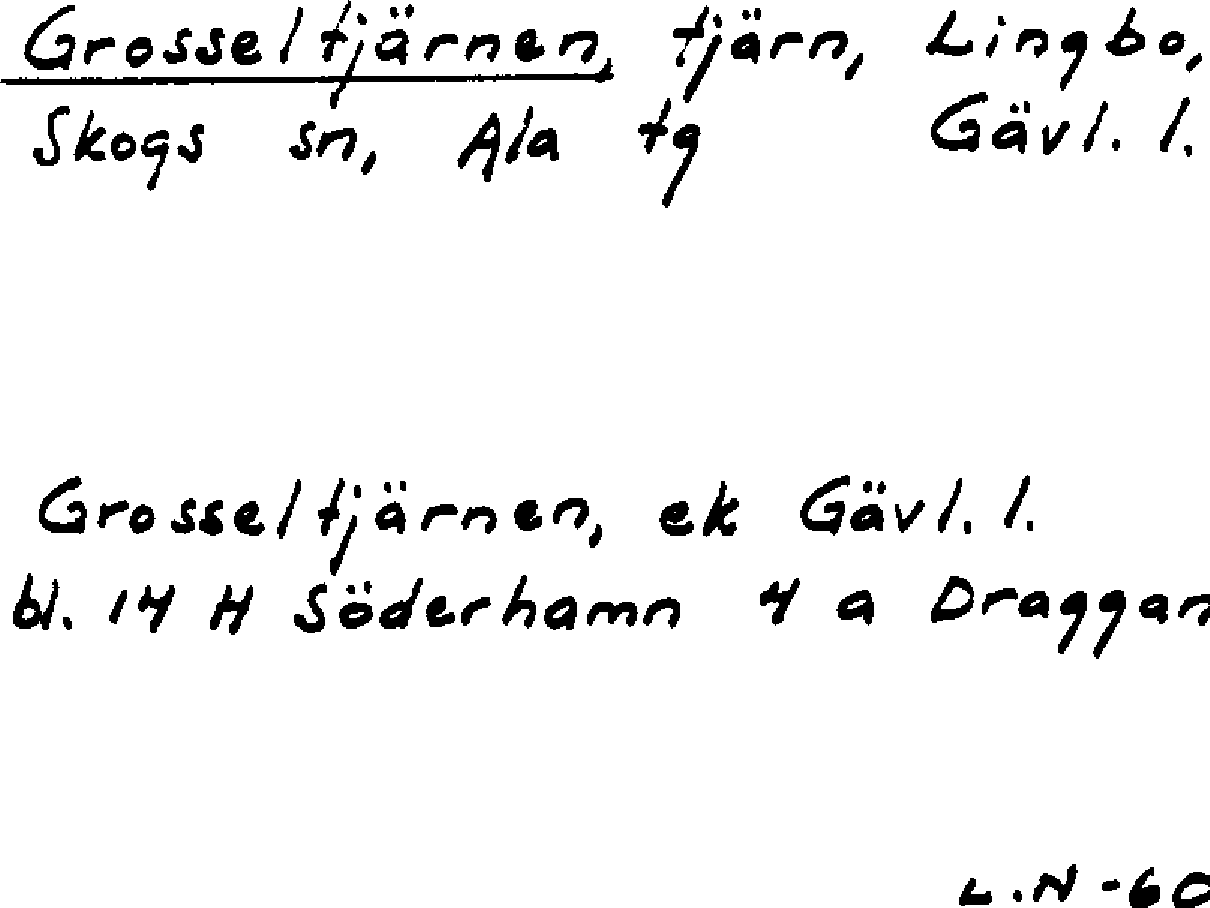 Grosseltjärnen, tjärn, Lingbo,
Skogs sn, Ala tg Gävl. l.
Grosseltjärnen, ek Gävl. l.
bl. 14 H Söderhamn 4 a Draggan
L.N -60